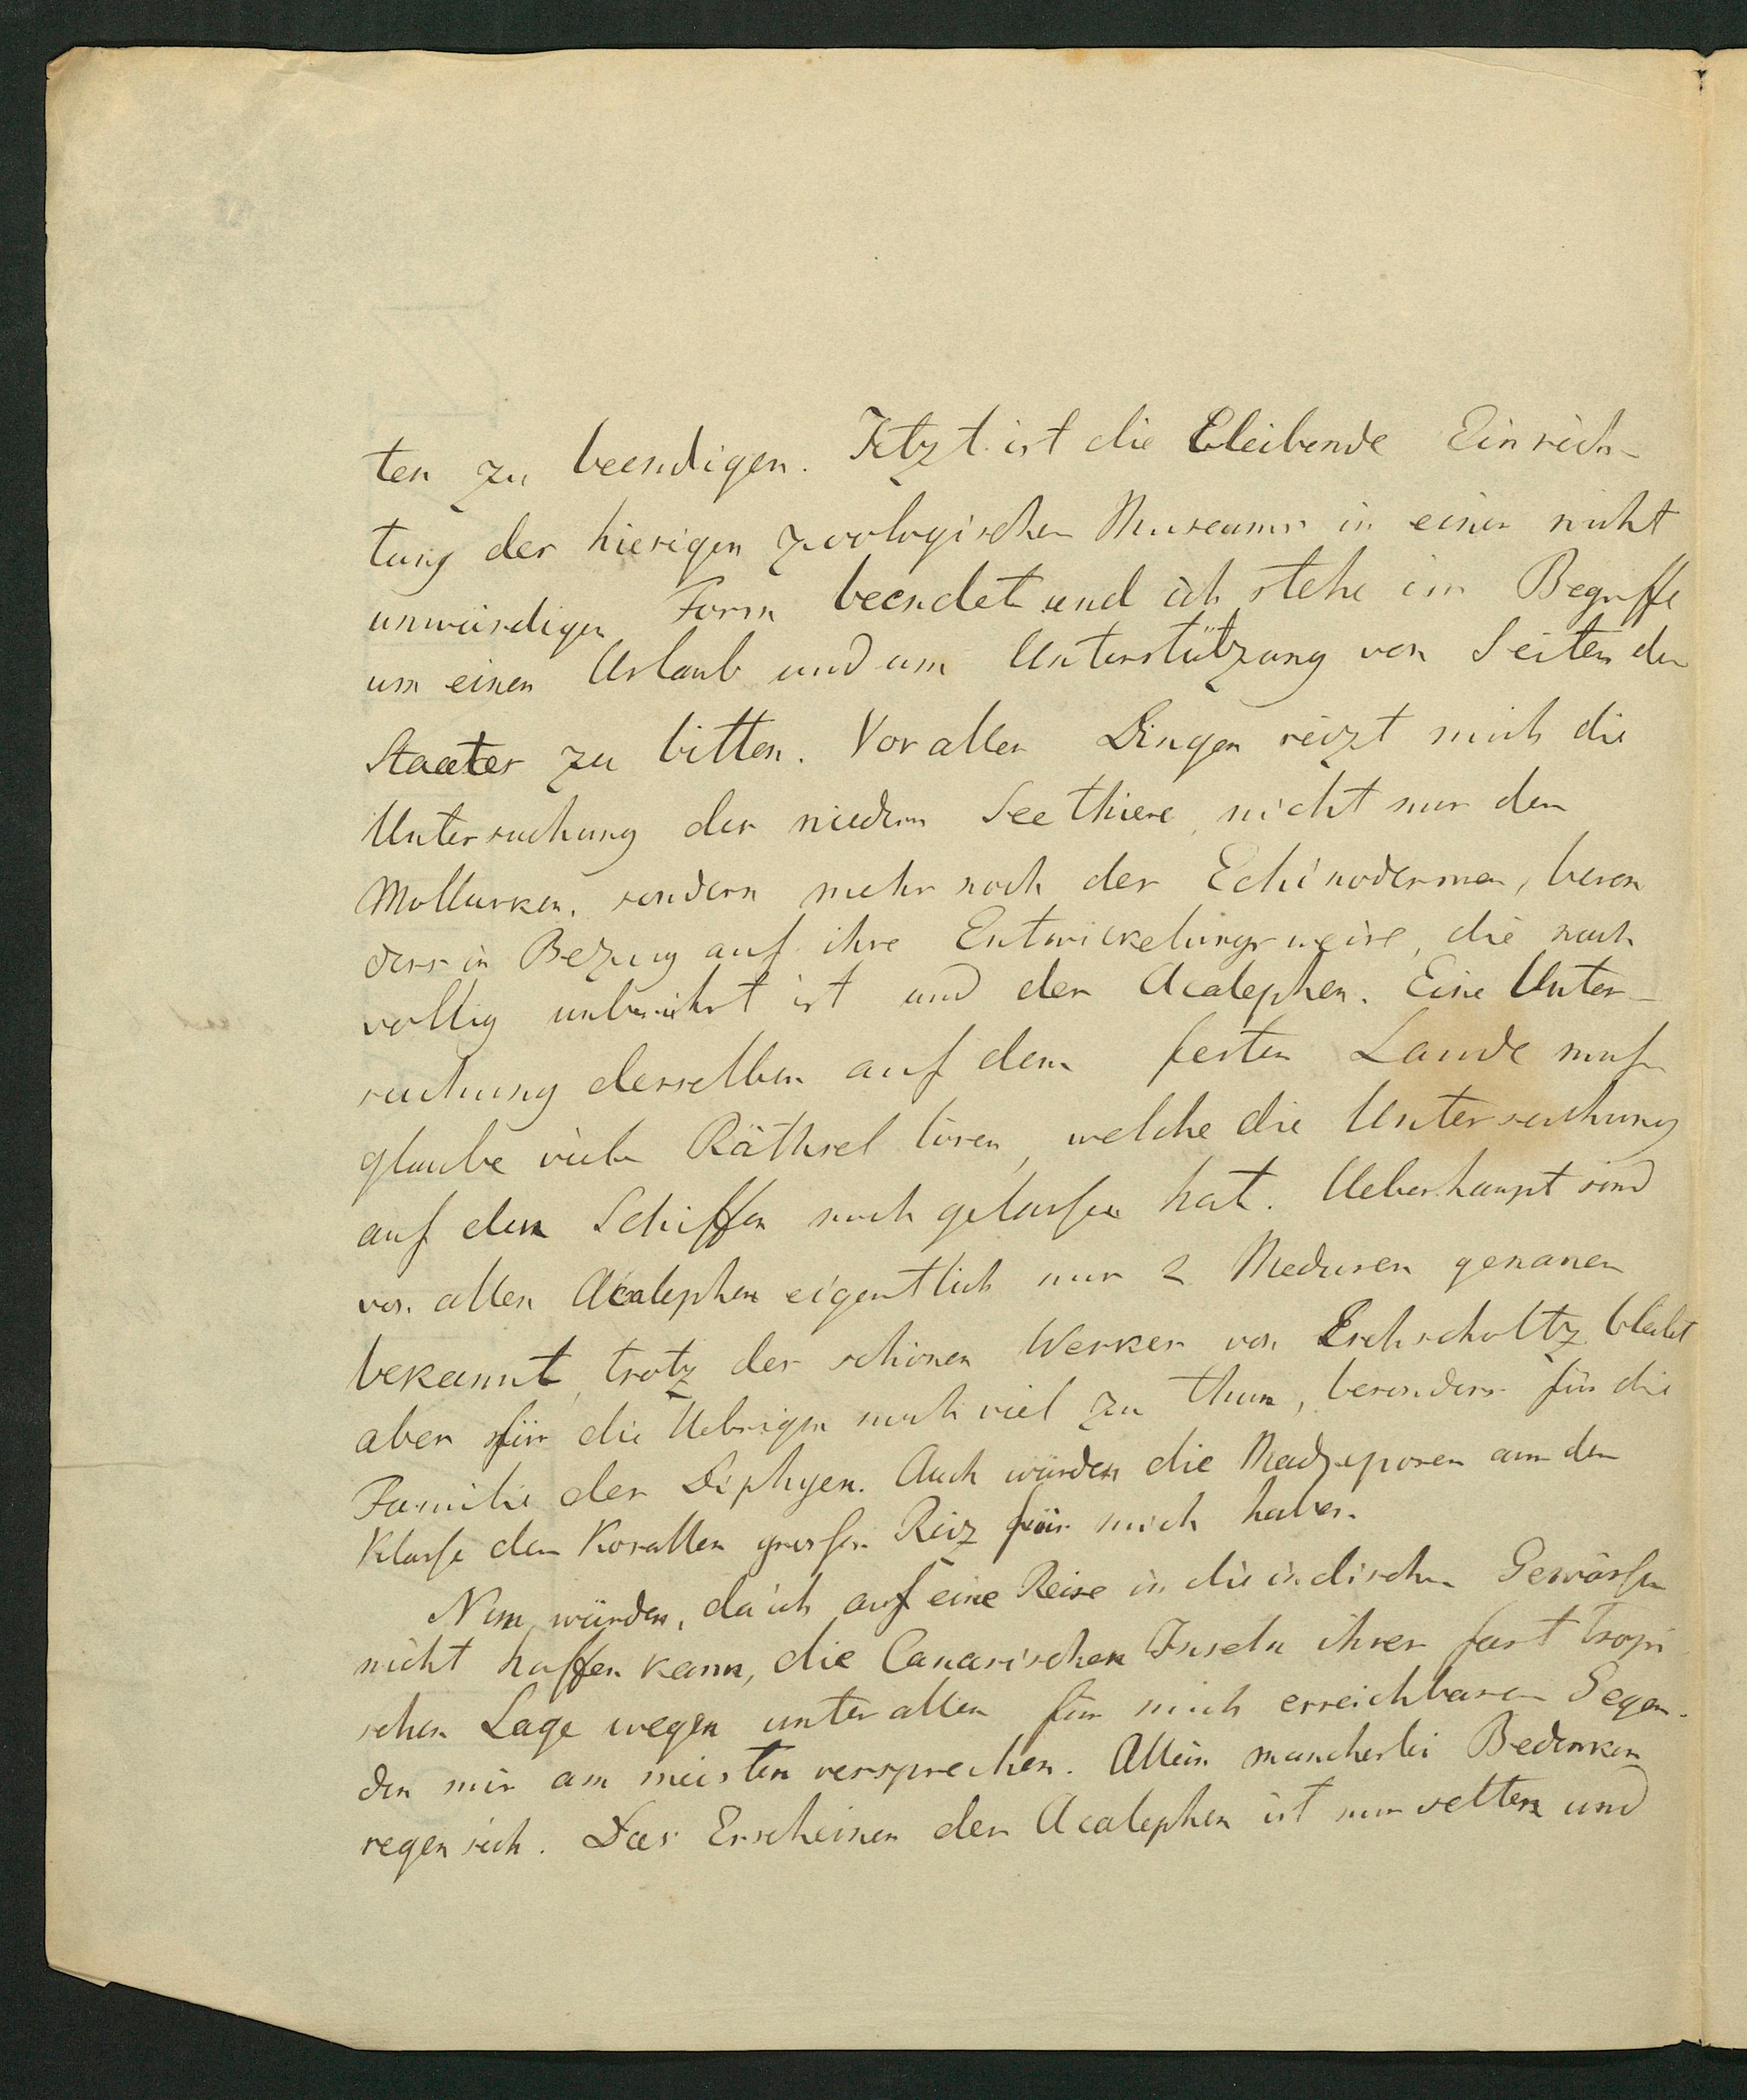 ten zu beendigen. Jetzt ist die bleibende Einrich-
tung des hiesigen zoologischen Museums in einer nicht
unwürdigen Form beendet und ich stehe im Begriffe
um einen Urlaub und um Unterstützung von Seiten des
Staates zu bitten. Vor allen Dingen reizt mich die
Untersuchung der niedern Seethiere, nicht nur der
Mollusken, sondern mehr noch der Echinodermen, beson
ders in Bezug auf ihre Entwickelungsweise, die noch
vollig unberührt ist und der Acalephen. Eine Unter-
suchung derselben auf dem festen Lande muß
glaube viele Räthsel lösen, welche die Untersuchung
auf den Schiffen noch gelassen hat. Ueberhaupt sind
von allen Acalephen eigentlich nur 2 Medusen genauer
bekannt, trotz des schönen Werkes von Eschscholtz bleibt
aber für die Uebrigen noch viel zu thun, besonders für die
Familie der Diphyen. Auch würden die Madreporen aus der
Klasse der Korallen grossen Reiz für mich haben.
Nun würden, da ich auf eine Reise in die indischen Gewässer
nicht hoffen kann, die Canarischen Inseln ihrer fast tropi
schen Lage wegen unter allen für mich erreichbaren Gegen-
den mir am meisten versprechen. Allein mancherlei Bedenken
regen sich. Das Erscheinen der Acalephen ist nur selten und